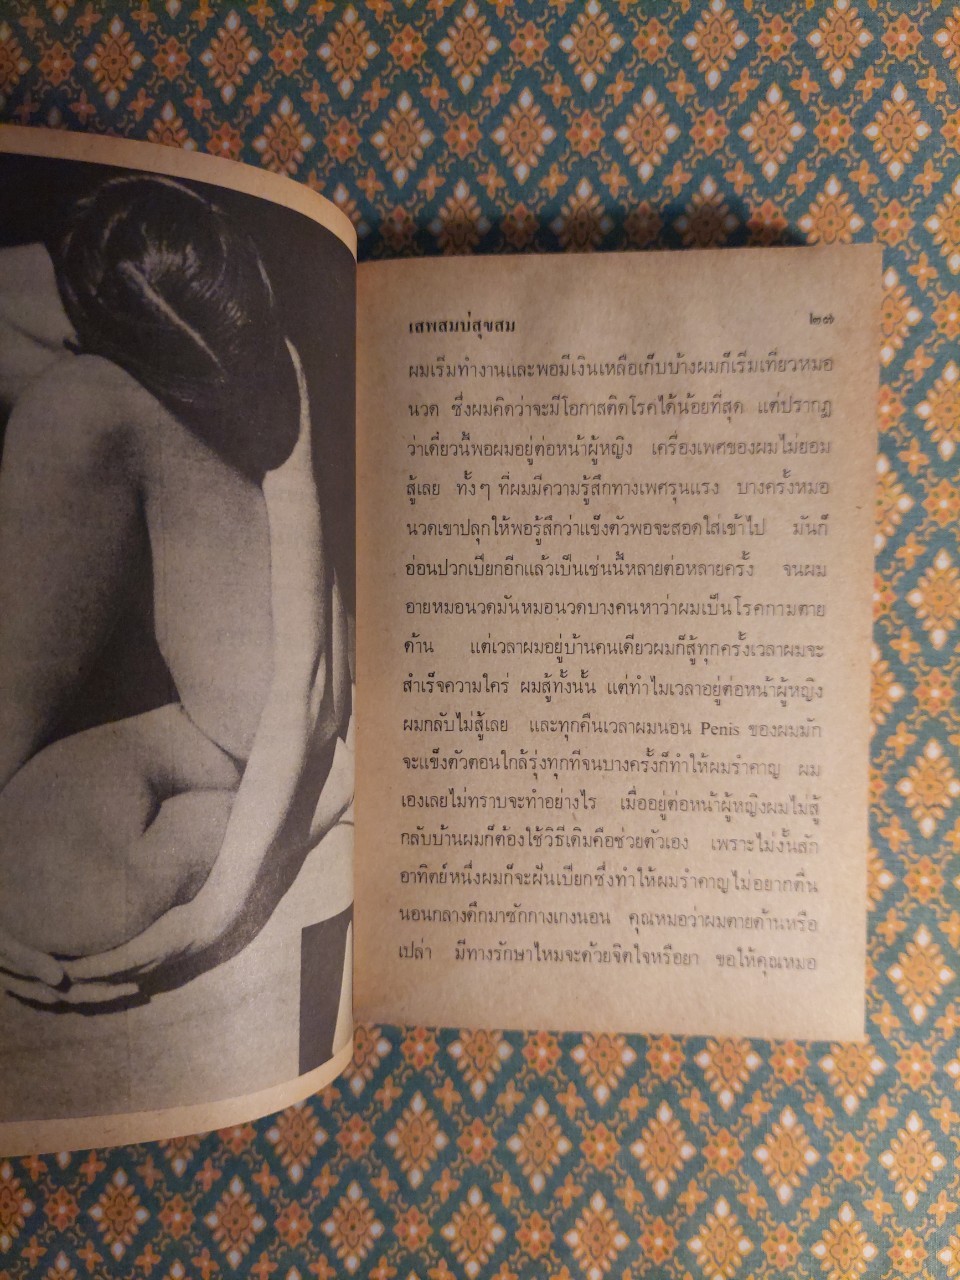 เสพสมบ่สุขสม ๒๗
ผมเริ่มทำงานและพอมีเงินเหลือเก็บบ้างผมก็เริ่มเที่ยวหมอ
นวด ซึ่งผมคิดว่าจะมีโอกาสติดโรคได้น้อยที่สุด แต่ปรากฏ
ว่าเดี๋ยวนี้พอผมอยู่ต่อหน้าผู้หญิง เครื่องเพศของผมไม่ยอม
สู้เลย ทั้งๆ ที่ผมมีความรู้สึกทางเพศรุนแรง บางครั้งหมอ
นวดเขาปลุกให้พอรู้สึกว่าแข็งตัวพอจะสอดใส่เข้าไป มันก็
อ่อนปวกเปียกอีกแล้วเป็นเช่นนี้หลายต่อหลายครั้ง จนผม
อายหมอนวดมันหมอนวดบางคนหาว่าผมเป็นโรคกามตาย
ด้าน แต่เวลาผมอยู่บ้านคนเดียวผมก็สู้ทุกครั้งเวลาผมจะ
สำเร็จความใคร่ ผมสู้ทั้งนั้น แต่ทำไมเวลาอยู่ต่อหน้าผู้หญิง
ผมกลับไม่สู้เลย และทุกคืนเวลาผมนอน Penis ของผมมัก
จะแข็งตัวตอนใกล้รุ่งทุกทีจนบางครั้งก็ทำให้ผมรำคาญ ผม
เองเลยไม่ทราบจะทำอย่างไร เมื่ออยู่ต่อหน้าผู้หญิงผมไม่สู้
กลับบ้านผมก็ต้องใช้วิธีเดิมคือช่วยตัวเอง เพราะไม่งั้นสัก
อาทิตย์หนึ่งผมก็จะฝันเปียกซึ่งทำให้ผมรำคาญไม่อยากตื่น
นอนกลางดึกมาซักกางเกงนอน คุณหมอว่าผมตายด้านหรือ
เปล่า มีทางรักษาไหมจะด้วยจิตใจหรือยา ขอให้คุณหมอ